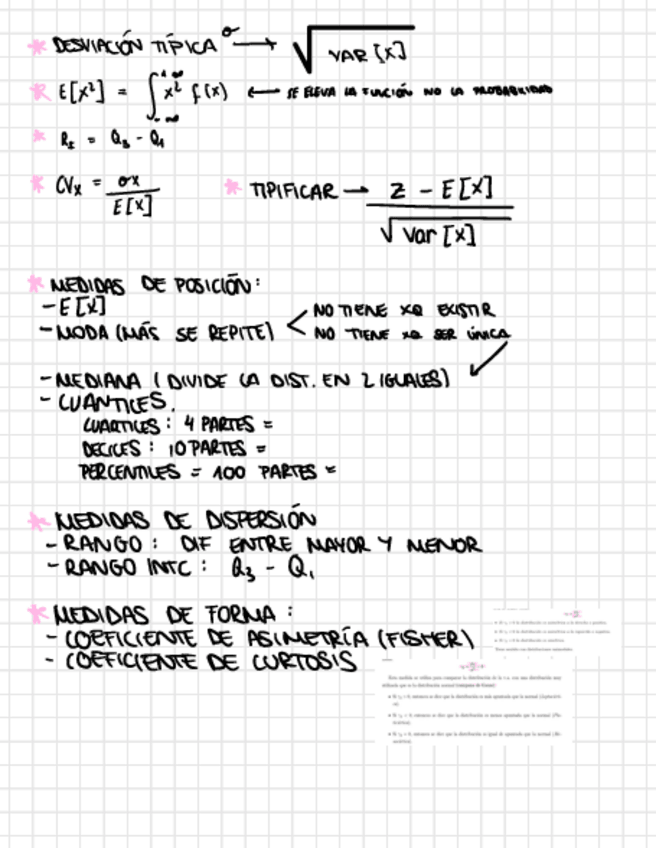 * DESVIACIÓN TÍPICA σ → √VAR [X]
* E[X²] = ∫_{-∞}^{+∞} x² f(x) ← SE ELEVA LA FUNCIÓN NO LA PROBABILIDAD
* R_I = Q₃ - Q₁
* CVₓ = σx / E[X] * TIPIFICAR → (Z - E[X]) / √Var [X]
* MEDIDAS DE POSICIÓN:
- E[X]
- MODA (MÁS SE REPITE) < NO TIENE XQ EXISTIR
NO TIENE XQ SER ÚNICA
- MEDIANA (DIVIDE LA DIST. EN 2 IGUALES)
- CUANTILES.
CUARTILES: 4 PARTES =
DECILES: 10 PARTES =
PERCENTILES = 100 PARTES =
* MEDIDAS DE DISPERSIÓN
- RANGO: DIF ENTRE MAYOR Y MENOR
- RANGO INTC: Q₃ - Q₁
* MEDIDAS DE FORMA:
- COEFICIENTE DE ASIMETRÍA (FISHER)
- COEFICIENTE DE CURTOSIS